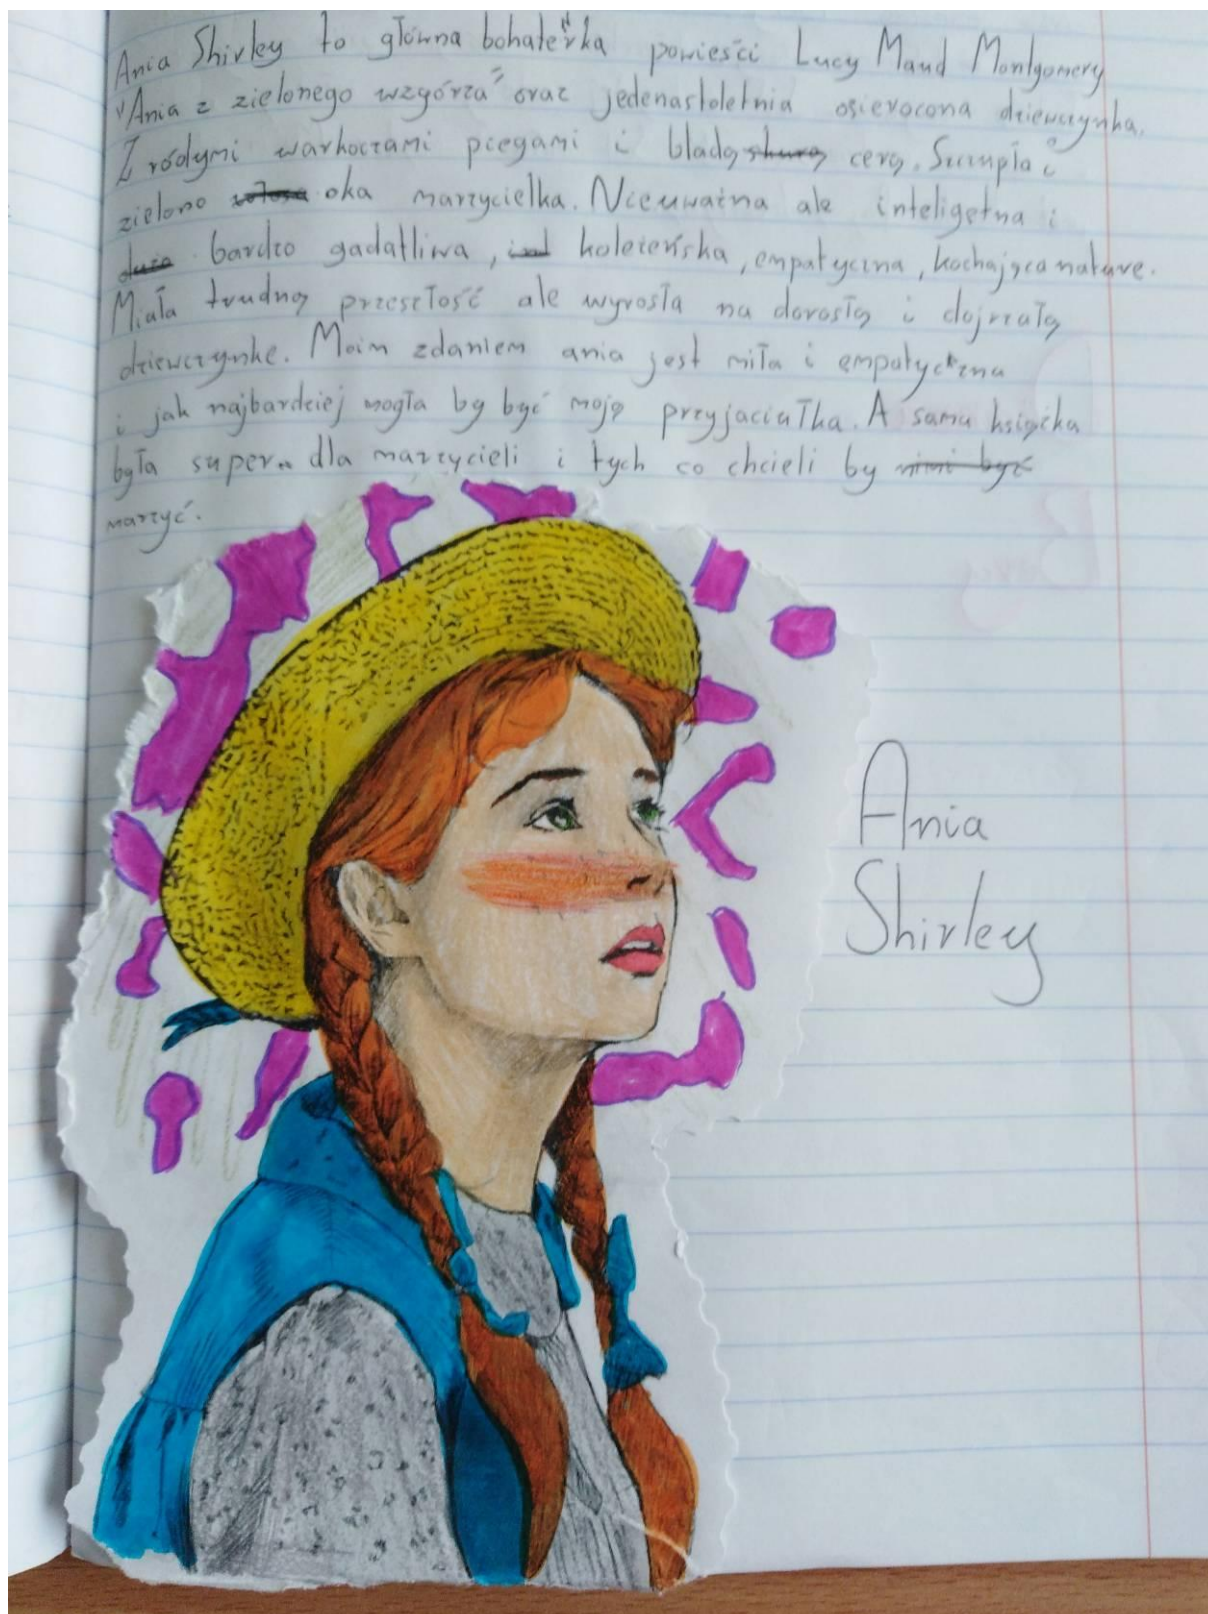 Ania Shirley to główna bohaterka powieści Lucy Maud Montgomery
"Ania z zielonego wzgórza" oraz jedenastoletnia osierocona dziewczynka.
Z ródymi warkoczami piegami i bladą cerą. Szczupła i
zielono oka marzycielka. Nieuważna ale inteligętna i
bardzo gadatliwa, koleżeńska, empatyczna, kochająca nature.
Miała trudną przeszłość ale wyrosła na dorosłą i dojrzałą
dziewczynke. Moim zdaniem ania jest miła i empatyczna
i jak najbardziej mogła by być moją przyjaciułka. A sama książka
była super.. dla marzycieli i tych co chcieli by nimi być
marzyć.
Ania
Shirley